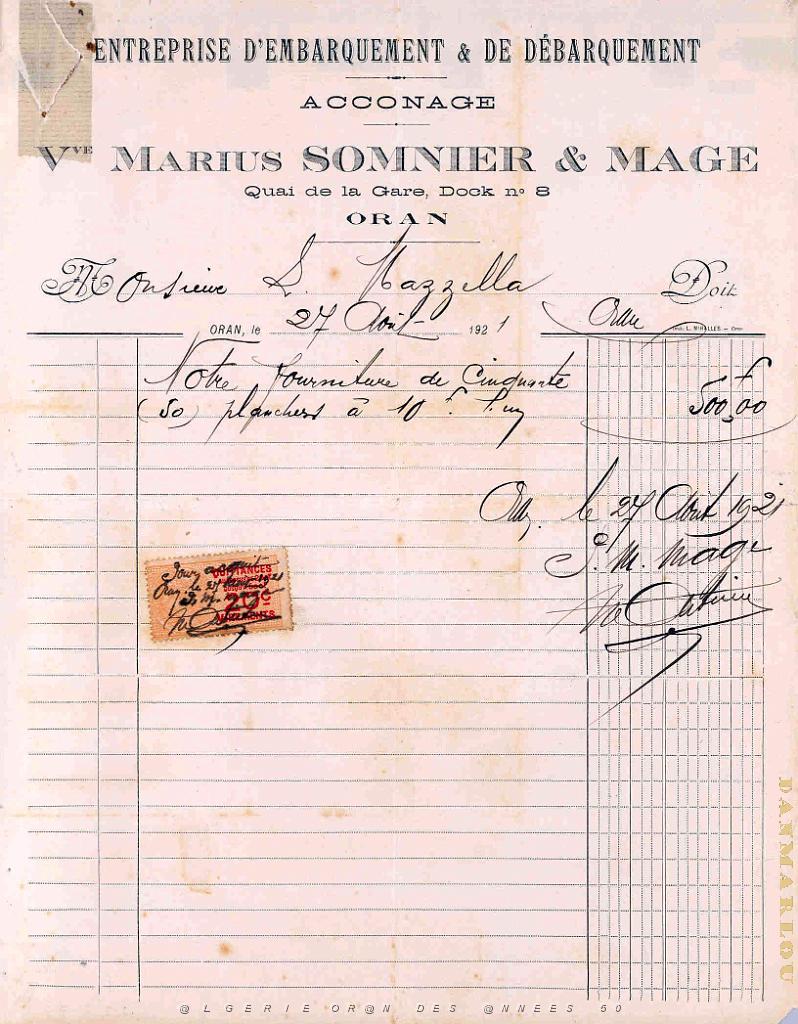 ENTREPRISE D'EMBARQUEMENT & DE DÉBARQUEMENT
ACCONAGE
Vve MARIUS SOMNIER & MAGE
Quai de la Gare, Dock no 8
ORAN
Monsieur S. Mazzella Doit
ORAN, le 27 Août 1921 Oran
Notre fourniture de Cinquante
(50) planchers à 10 f. l'un 500,00 f
Oran, le 27 Août 1921
P. M. Mage
Pour acquit
Oran le 27 Août 1921
QUITTANCES
DANMARLOU
@LGERIE OR@N DES @NNEES 50